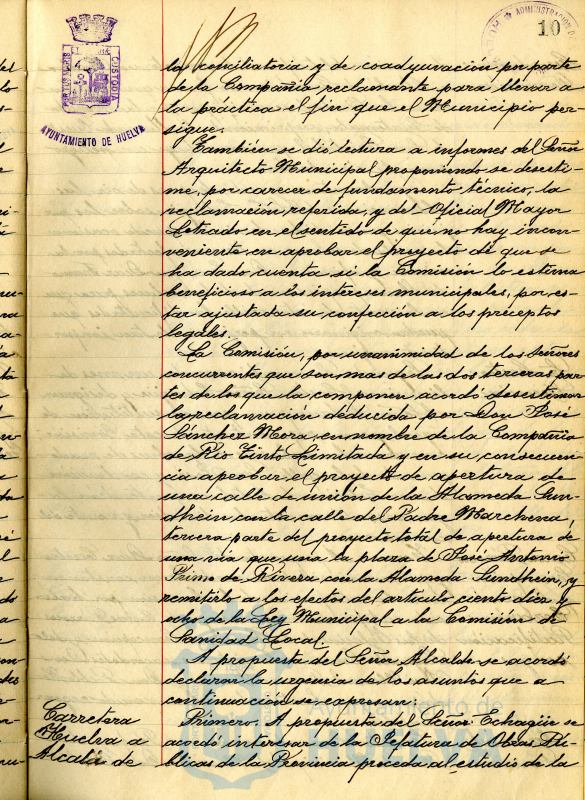 ADMINISTRACION D
10
PORTUS MARIS ET TERRAE CUSTODIA
AYUNTAMIENTO DE HUELVA
la conciliatoria y de coadyuvación por parte
de la Compañia reclamante para llevar a
la práctica el fin que el Municipio per
sigue.
Tambien se dió lectura a informes del Señor
Arquitecto Municipal proponiendo se desesti-
me, por carecer de fundamento técnico, la
reclamación referida, y del Oficial Mayor
Letrado en el sentido de que no hay incon-
veniente en aprobar el proyecto de que se
ha dado cuenta si la Comisión lo estima
beneficioso a los intereses municipales, por es-
tar ajustada su confección a los preceptos
legales.
La Comisión, por unanimidad de los Señores
concurrentes que son mas de las dos terceras par
tes de los que la componen acordó desestimar
la reclamación deducida por Don José
Sánchez Mora, en nombre de la Compañia
de Rio Tinto Limitada y en su consecuen
cia aprobar el proyecto de apertura de
una calle de unión de la Alameda Sun-
dhein con la calle del Padre Marchena,
tercera parte del proyecto total de apertura de
una via que una la plaza de José Antonio
Primo de Rivera con la Alameda Sundhein, y
remitirlo a los efectos del articulo ciento diez y
ocho de la Ley Municipal a la Comisión de
Sanidad Local.
A propuesta del Señor Alcalde se acordó
declarar la urgencia de los asuntos que a
continuación se expresan:
Carretera
Huelva a
Alcalá de
Primero. A propuesta del Señor Echagüe se
acordó interesar de la Jefatura de Obras Pú-
blicas de la Provincia proceda al estudio de la
Ayuntamiento de
HUELVA